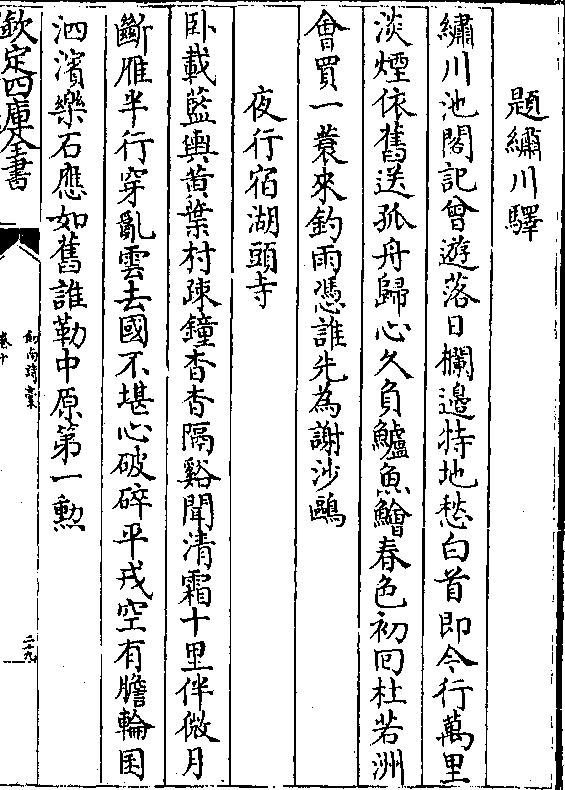 題繡川驛
繡川池閣記曾遊落日欄邊特地愁白首即今行萬里
淡煙依舊送孤舟歸心久負鱸魚鱠春色初回杜若洲
會買一蓑來釣雨憑誰先為謝沙鷗
夜行宿湖頭寺
卧載藍輿黃葉村疎鐘杳杳隔谿聞清霜十里伴微月
斷雁半行穿亂雲去國不堪心破碎平戎空有膽輪囷
泗濱樂石應如舊誰勒中原第一勲
欽定四庫全書
劍南詩稾
卷十
二九